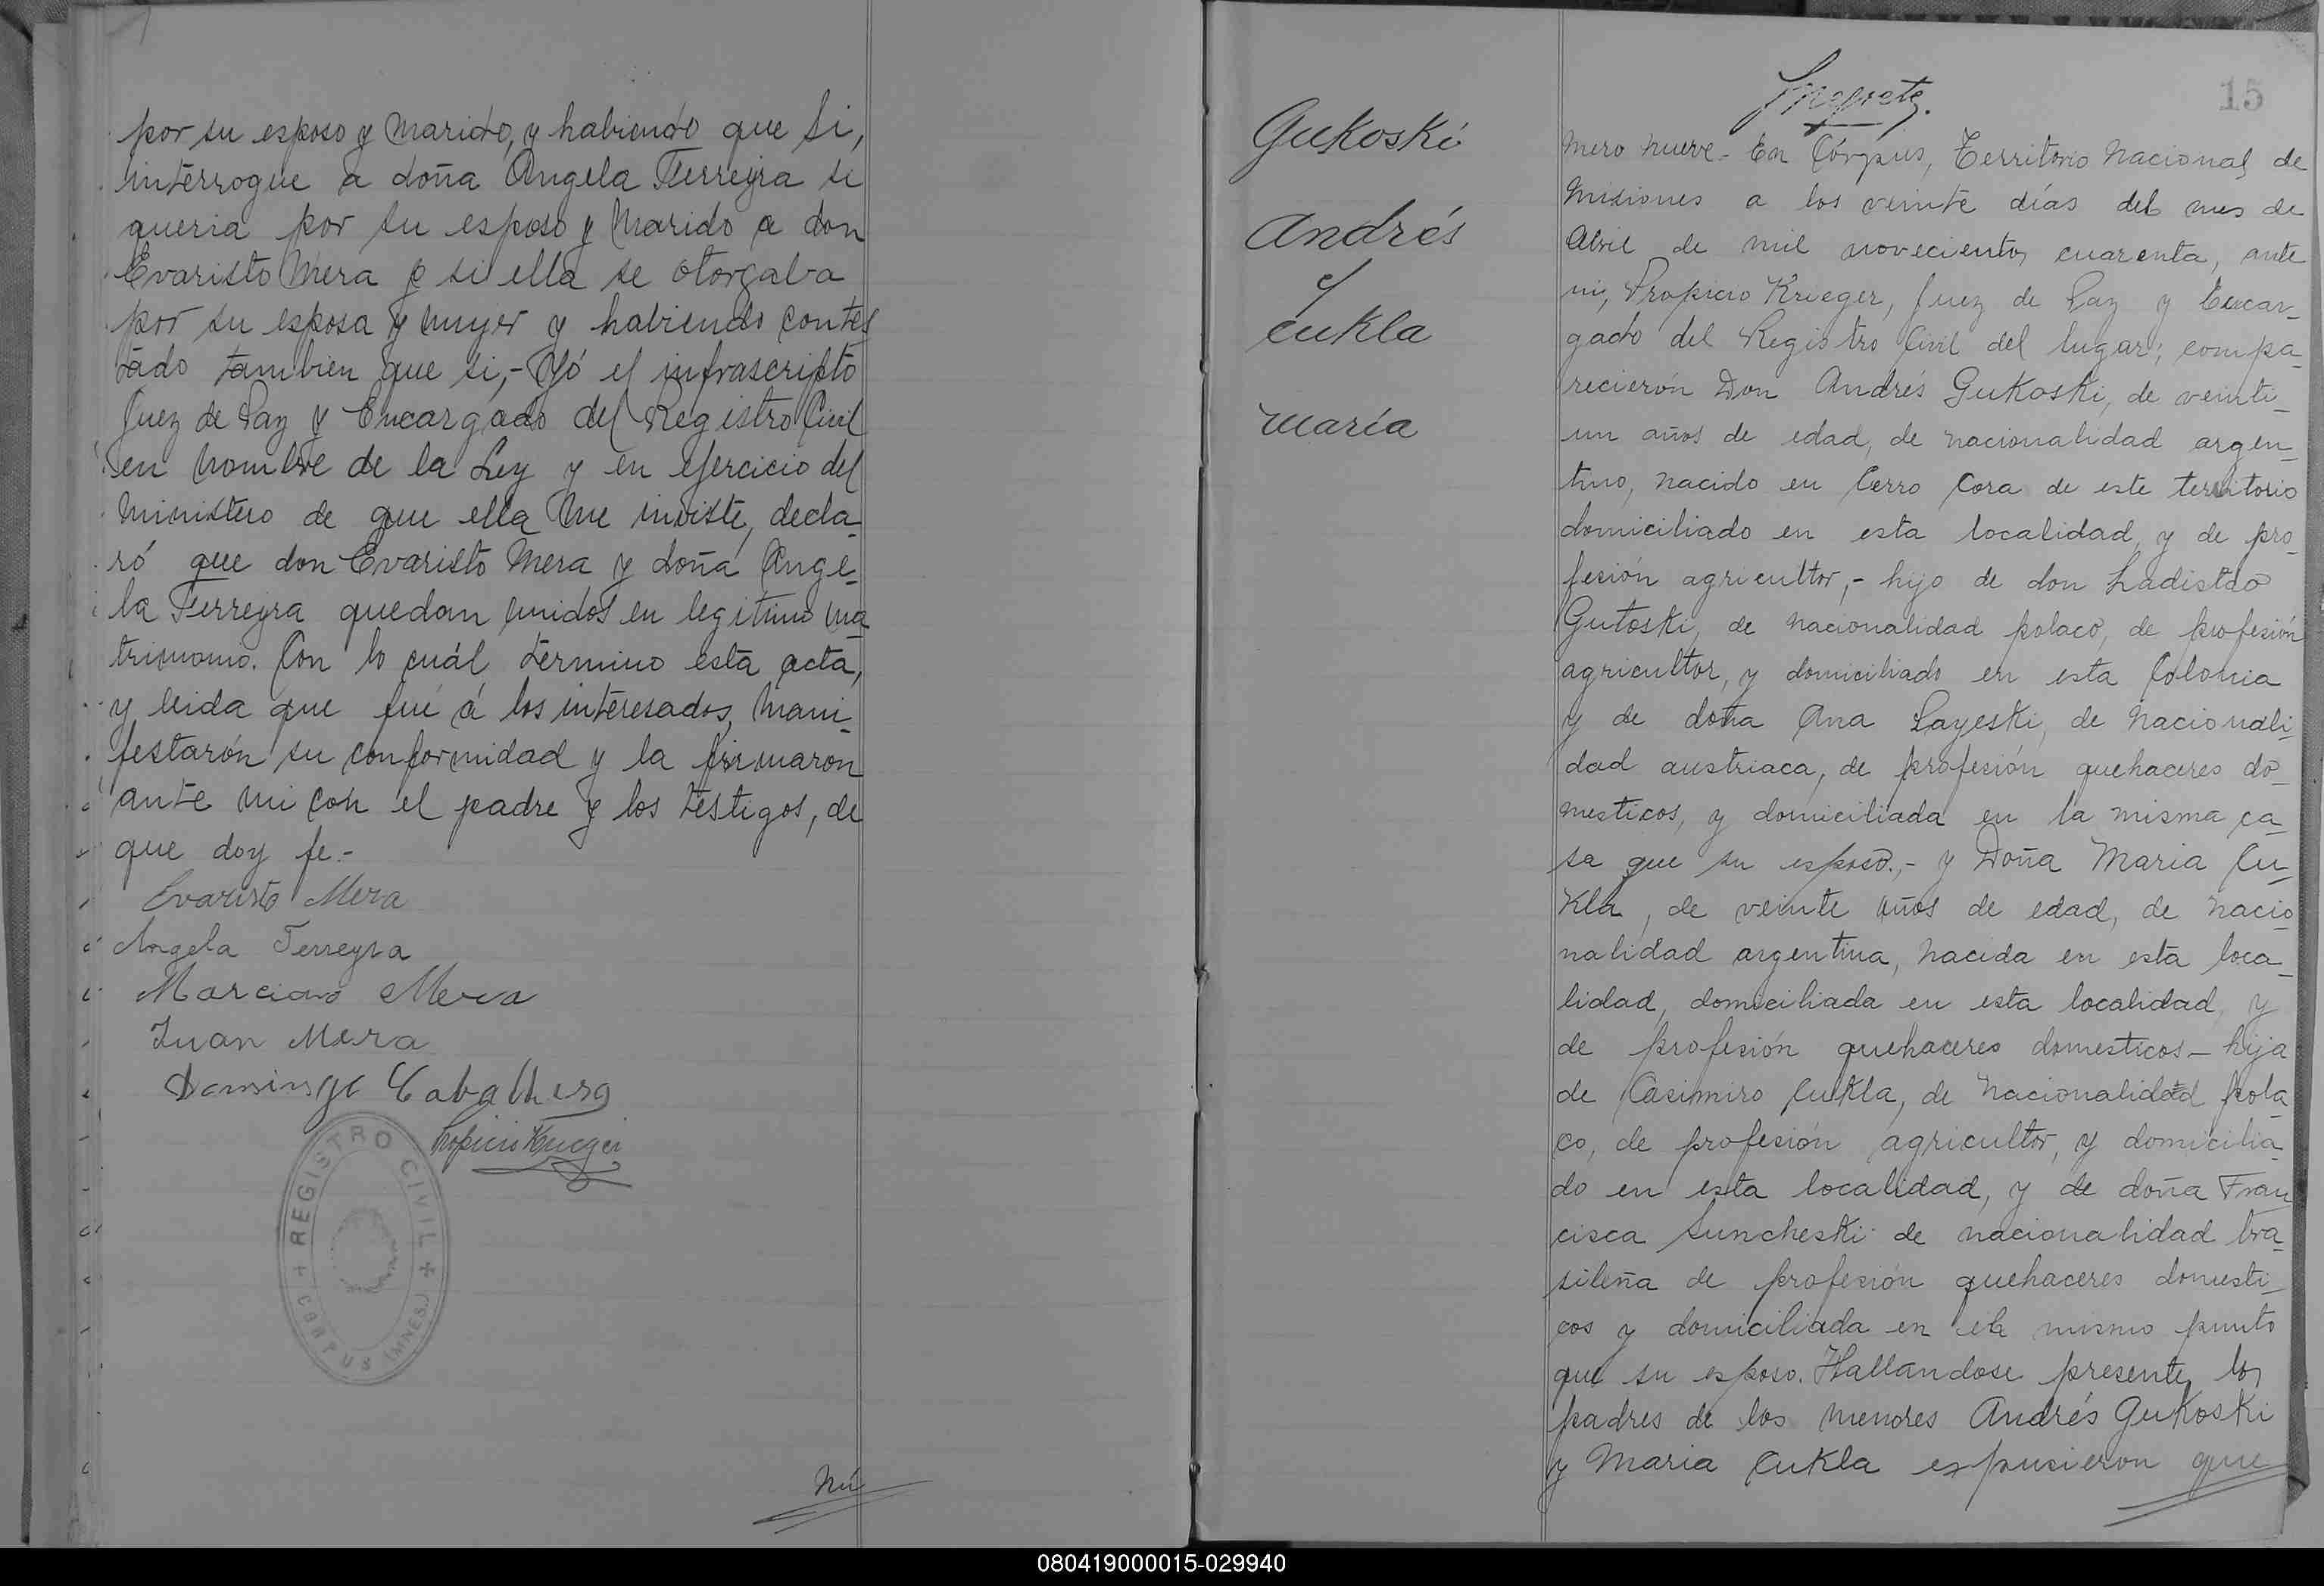 por su esposo y marido, y habiendo que si,
interrogue a doña Angela Ferreyra si
queria por su esposo y marido a don
Evaristo Mera y si ella se otorgaba
por su esposa y mujer y habiendo contes
tado tambien que si,- Yó el infrascripto
Juez de Paz y Encargado del Registro Civil
en nombre de la Ley y en ejercicio del
ministerio de que ella me inviste, decla-
ró que don Evaristo Mera y doña Ange-
la Ferreyra quedan unidos en legitimo ma-
trimonio. Con lo cuál termino esta acta,
y leida que fué á los interesados, mani-
festarón su conformidad y la firmaron
ante mi con el padre y los testigos, de
que doy fe.-
Evaristo Mera
Angela Ferreyra
Marciano Mera
Juan Mera
Domingo Caballero
Propicio Krieger
REGISTRO CIVIL
CORPUS (MNES.)
Nú
Gukoski
Andrés
y
Cukla
María
15
mero nueve.- En Córpus, Territorio Nacional de
Misiones a los veinte días del mes de
Abril de mil novecientos cuarenta, ante
mi, Propicio Krieger, Juez de Paz y Encar-
gado del Registro Civil del lugar; compa-
recierón Don Andrés Gukoski, de veinti-
un años de edad, de nacionalidad argen-
tino, nacido en Cerro Cora de este territorio
domiciliado en esta localidad, y de pro-
fesión agricultor,- hijo de don Ladislao
Gutoski, de nacionalidad polaco, de profesión
agricultor, y domiciliado en esta Colonia
y de doña Ana Layeski, de nacionali-
dad austriaca, de profesión quehaceres do-
mesticos, y domiciliada en la misma ca-
sa que su esposo.- y Doña Maria Cu-
kla, de veinte años de edad, de nacio-
nalidad argentina, nacida en esta loca-
lidad, domiciliada en esta localidad, y
de profesión quehaceres domesticos- hija
de Casimiro Cukla, de nacionalidad pola-
co, de profesión agricultor, y domicilia-
do en esta localidad, y de doña Fran
cisca Suncheski de nacionalidad bra-
sileña de profesión quehaceres domesti-
cos y domiciliada en el mismo punto
que su esposo. Hallandose presentes los
padres de los menores Andrés Gukoski
y Maria Cukla expusieron que
080419000015-029940